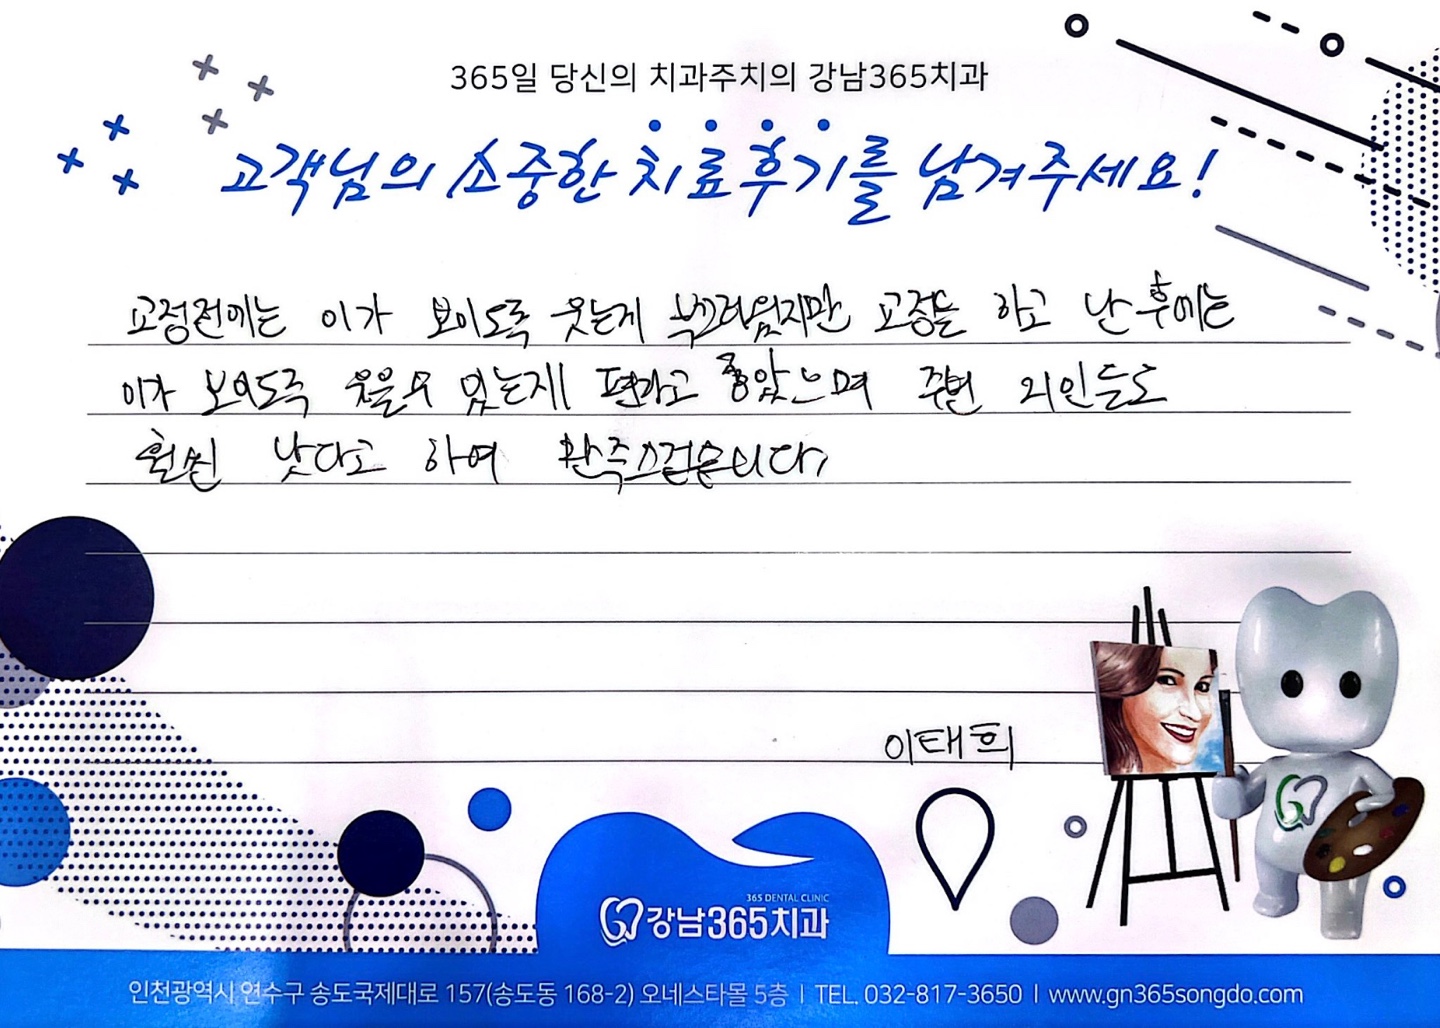 365일 당신의 치과주치의 강남365치과
고객님의 소중한 치료후기를 남겨주세요!
교정전에는 이가 보이도록 웃는게 부끄러웠지만 교정을 하고 난 후에는
이가 보이도록 웃을수 있는게 편하고 좋았으며 주변 지인들도
훨씬 낫다고 하여 만족스럽습니다
이태희
365 DENTAL CLINIC
강남365치과
인천광역시 연수구 송도국제대로 157(송도동 168-2) 오네스타몰 5층 | TEL. 032-817-3650 | www.gn365songdo.com